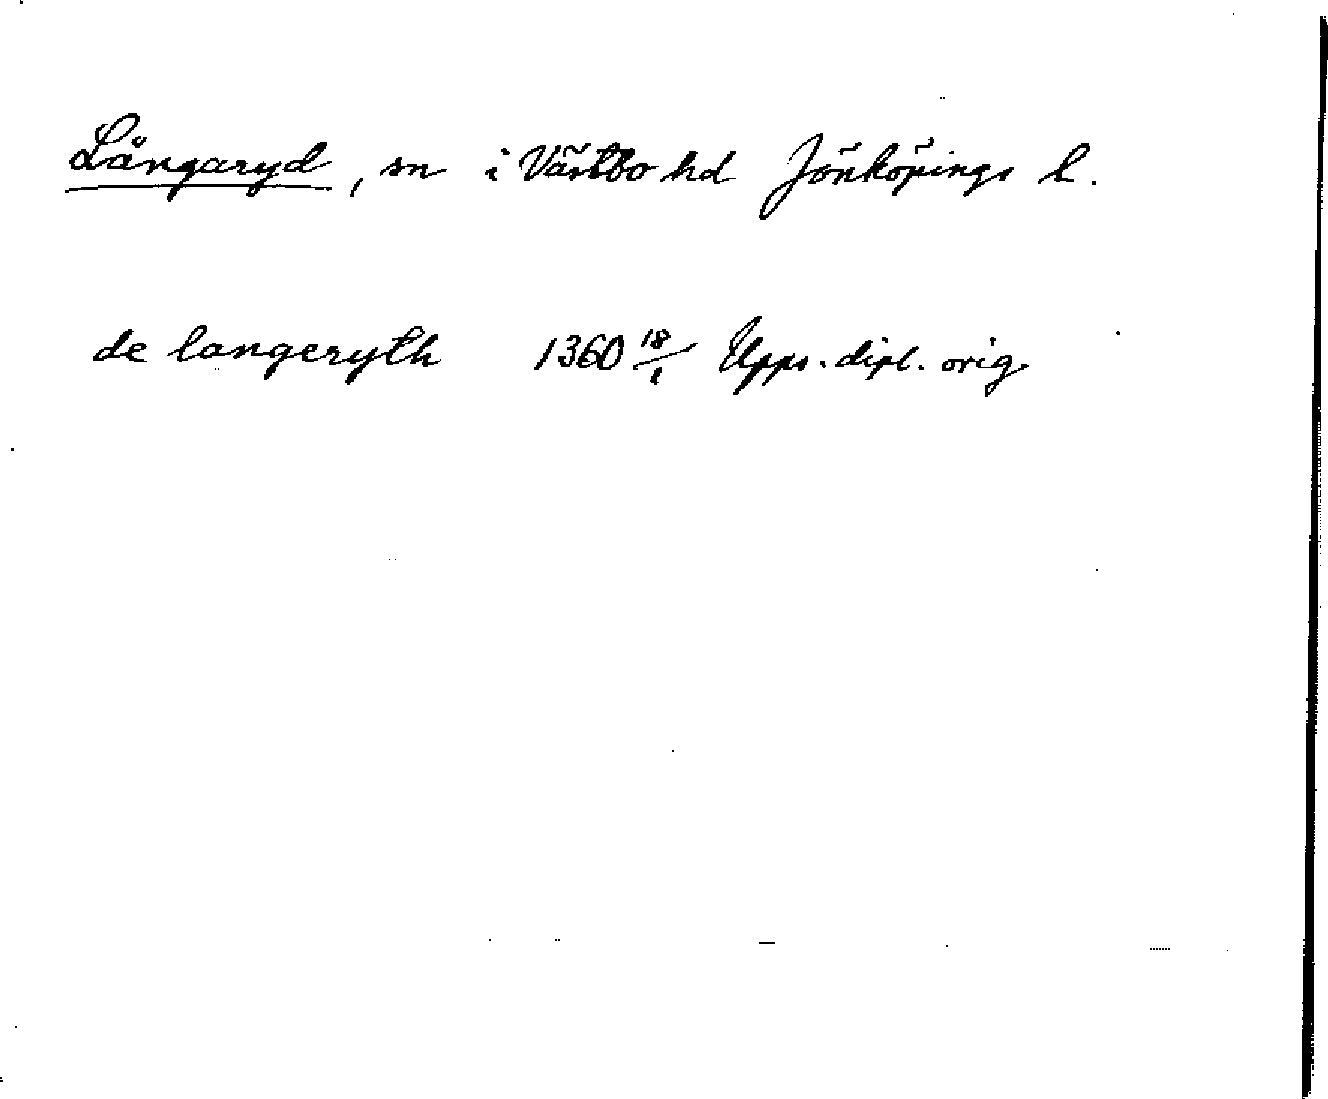 Långaryd, sn i Västbo hd Jönköpings l.
de langeryth 1360 18/1 Upps. dipl. orig